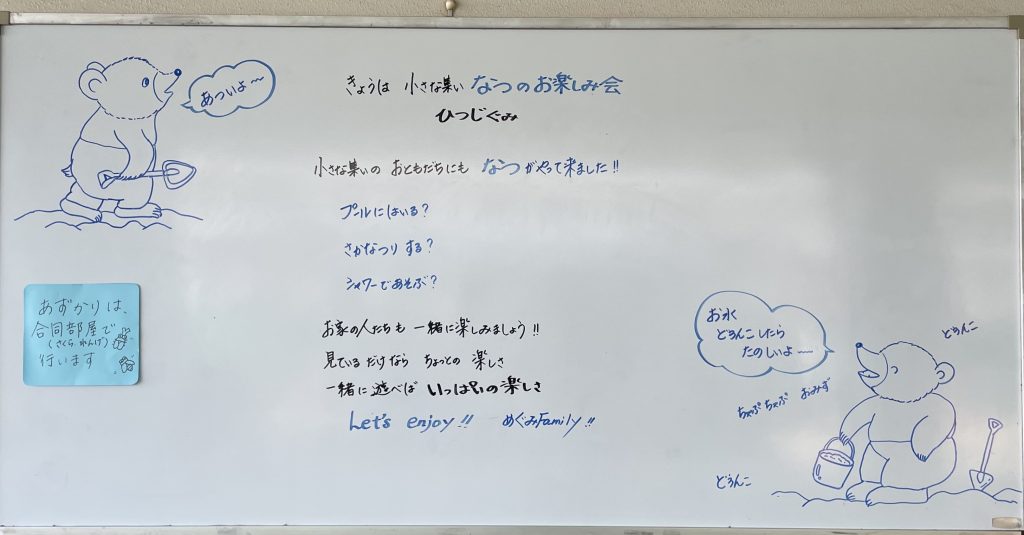 あついよ〜
きょうは 小さな集い なつのお楽しみ会
ひつじぐみ
小さな集いの おともだちにも なつがやって来ました!!
プールにはいる?
さかなつりする?
シャワーであそぶ?
お家の人たちも 一緒に楽しみましょう!!
見ているだけなら ちょっとの 楽しさ
一緒に遊べば いっぱいの楽しさ
Let's enjoy!! めぐみFamily!!
あずかりは、
合同部屋で
(さくら、れんげ)
行います
お水
どろんこしたら
たのしいよ〜
どろんこ
ちゃぷちゃぷ おみず
どろんこ